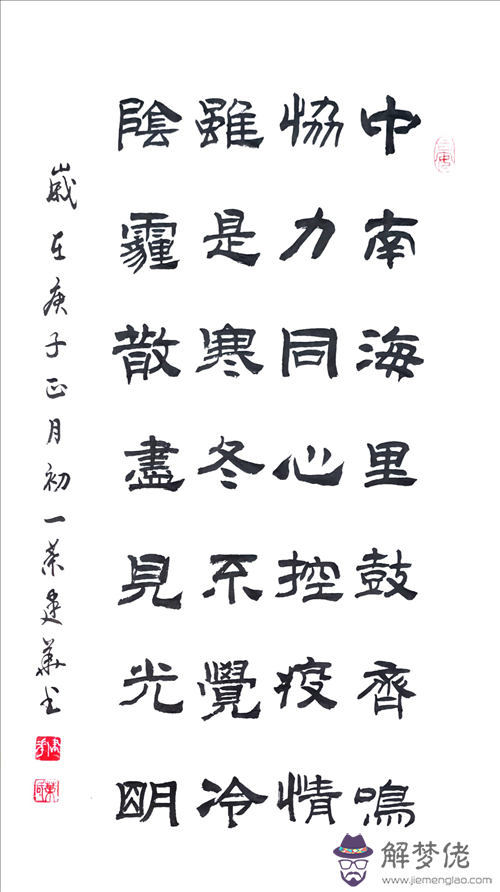 中南海里鼓齊鳴
協力同心控疫情
雖是寒冬不覺冷
陰霾散盡見光明
歲在庚子正月初一榮建華书
解梦佬
www.jiemenglao.com